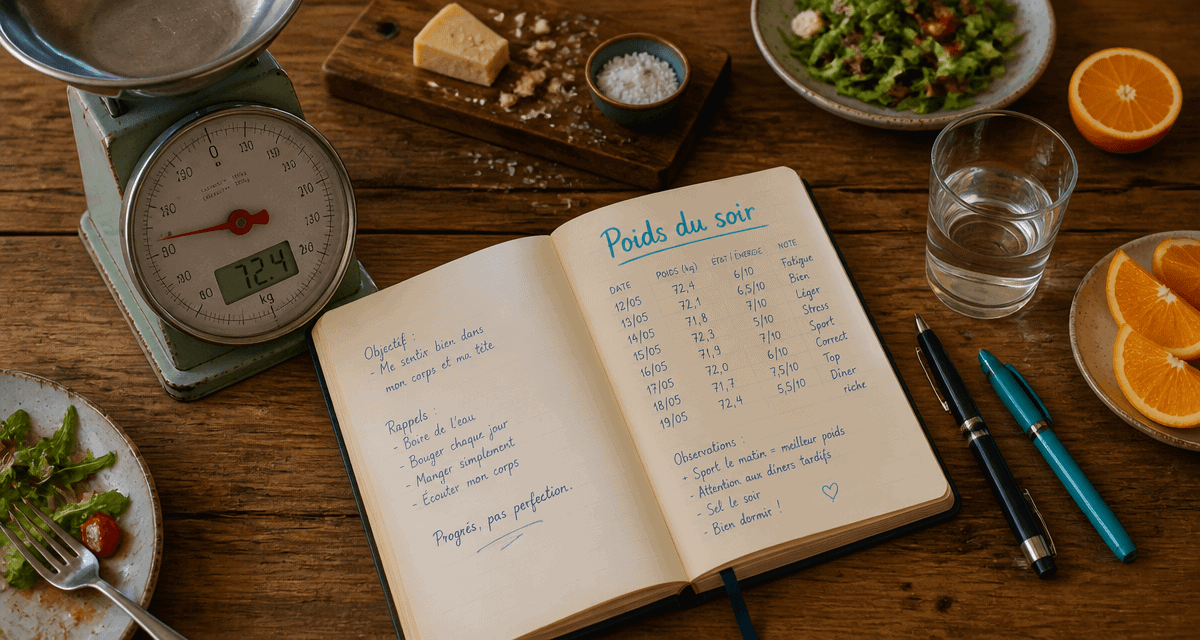 72.4
kg
Objectif :
- Me sentir bien dans
mon corps et ma tête
Rappels :
- Boire de l'eau
- Bouger chaque jour
- Manger simplement
- Écouter mon corps
Progrés, pas perfection.
Poids du soir
DATE POIDS (kg) ÉTAT / ÉNERGIE NOTE
12/05 72,4 6/10 Fatigue
13/05 72,1 6,5/10 Bien
14/05 71,8 7/10 Léger
15/05 72,3 5/10 Stress
16/05 71,9 7/10 Sport
17/05 72,0 6/10 Correct
18/05 71,7 7,5/10 Top
19/05 72,4 5,5/10 Dîner
riche
Observations :
+ Sport le matin = meilleur poids
- Attention aux dîners tardifs
- Sel le soir
- Bien dormir !